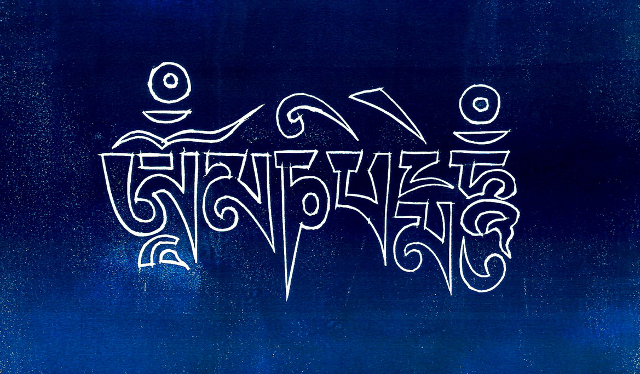 ཨོྃམཎིཔདྨེཧཱུྃ